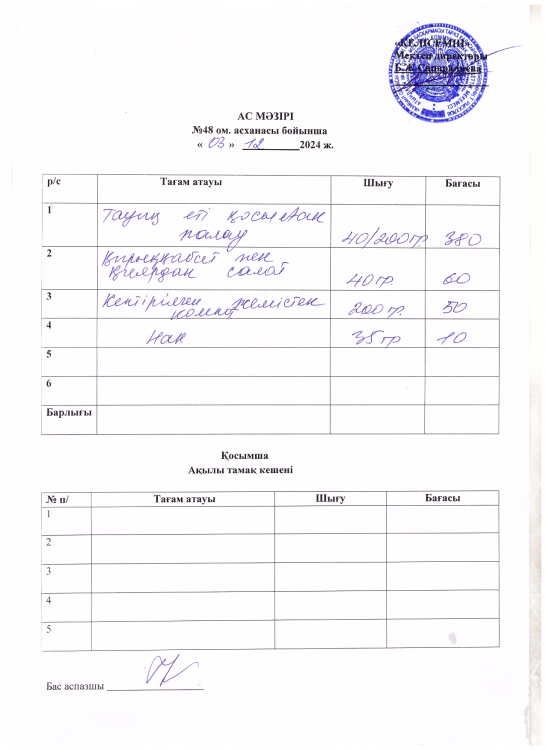 «КЕЛІСЕМІН»
Мектеп директоры
АС МӘЗІРІ
№48 ом. асханасы бойынша
« 03 » 12 2024 ж.
р/с Тағам атауы Шығу Бағасы
1 Тауық еті қосылған
палау 40/200гр 380
2 Қырыққабат пен
қиярдан салат 40 гр. 60
3 Кептірілген жемістен
компот 200 гр. 50
4 Нан 35 гр 10
5
6
Барлығы
Қосымша
Ақылы тамақ кешені
№ п/ Тағам атауы Шығу Бағасы
1
2
3
4
5
Бас аспазшы